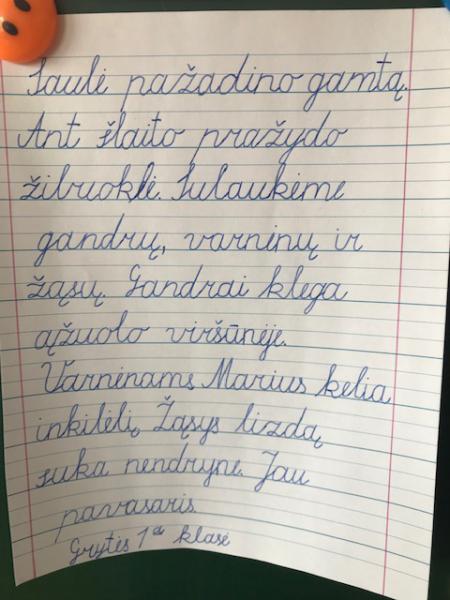 Saulė pažadino gamtą.
Ant šlaito pražydo
žibuoklė. Sulaukėme
gandrų, varnėnų ir
žąsų. Gandrai klega
ąžuolo viršūnėje.
Varnėnams Marius kelia
inkilėlį. Žąsys lizdą
suka nendryne. Jau
pavasaris.
Grytės 1ᵈᵉ klasė